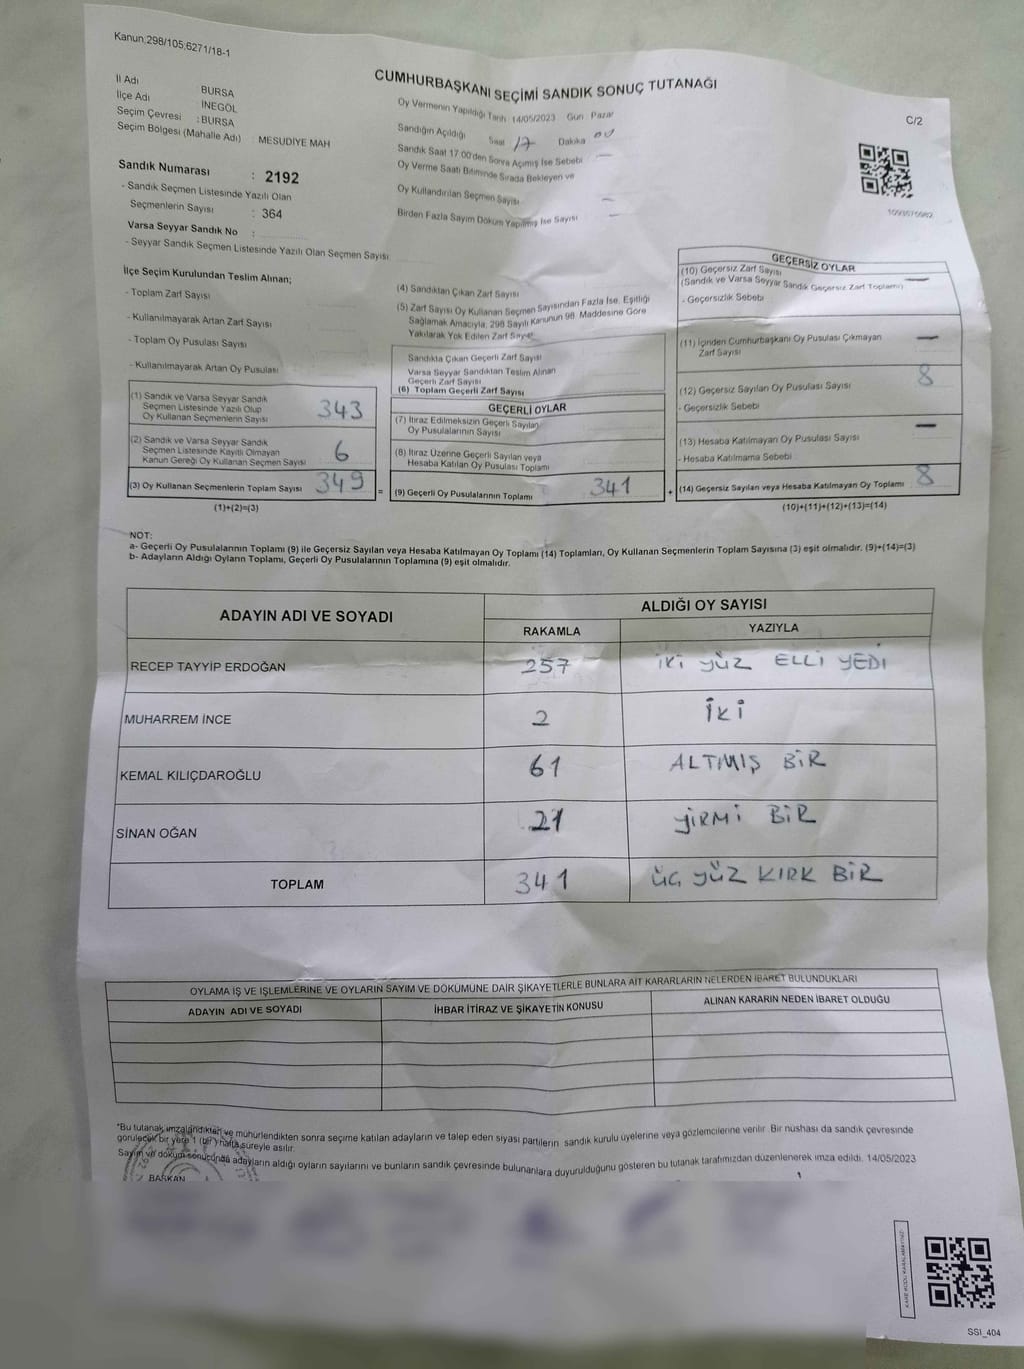 Kanun;298/105;6271/18-1
CUMHURBAŞKANI SEÇİMİ SANDIK SONUÇ TUTANAĞI
C/2
İl Adı BURSA
İlçe Adı İNEGÖL
Seçim Çevresi : BURSA
Seçim Bölgesi (Mahalle Adı) : MESUDİYE MAH
Sandık Numarası : 2192
- Sandık Seçmen Listesinde Yazılı Olan
Seçmenlerin Sayısı : 364
Varsa Seyyar Sandık No :
- Seyyar Sandık Seçmen Listesinde Yazılı Olan Seçmen Sayısı
Oy Vermenin Yapıldığı Tarih 14/05/2023 Gün Pazar
Sandığın Açıldığı Saat 17 Dakika 00
Sandık Saat 17.00'den Sonra Açımış İse Sebebi —
Oy Verme Saati Bitiminde Sırada Bekleyen ve
Oy Kullandırılan Seçmen Sayısı —
Birden Fazla Sayım Döküm Yapılmış İse Sayısı —
İlçe Seçim Kurulundan Teslim Alınan;
- Toplam Zarf Sayısı
- Kullanılmayarak Artan Zarf Sayısı
- Toplam Oy Pusulası Sayısı
- Kullanılmayarak Artan Oy Pusulası
(1) Sandık ve Varsa Seyyar Sandık
Seçmen Listesinde Yazılı Olup
Oy Kullanan Seçmenlerin Sayısı 343
(2) Sandık ve Varsa Seyyar Sandık
Seçmen Listesinde Kayıtlı Olmayan
Kanun Gereği Oy Kullanan Seçmen Sayısı 6
(3) Oy Kullanan Seçmenlerin Toplam Sayısı 349
(1)+(2)=(3)
(4) Sandıktan Çıkan Zarf Sayısı
(5) Zarf Sayısı Oy Kullanan Seçmen Sayısından Fazla İse, Eşitliği
Sağlamak Amacıyla, 298 Sayılı Kanunun 98. Maddesine Göre
Yakılarak Yok Edilen Zarf Sayısı
Sandıkta Çıkan Geçerli Zarf Sayısı
Varsa Seyyar Sandıktan Teslim Alınan
Geçerli Zarf Sayısı
(6) Toplam Geçerli Zarf Sayısı
GEÇERLİ OYLAR
(7) İtiraz Edilmeksizin Geçerli Sayılan
Oy Pusulalarının Sayısı
(8) İtiraz Üzerine Geçerli Sayılan veya
Hesaba Katılan Oy Pusulası Toplamı
= (9) Geçerli Oy Pusulalarının Toplamı 341
GEÇERSİZ OYLAR
(10) Geçersiz Zarf Sayısı
(Sandık ve Varsa Seyyar Sandık Geçersiz Zarf Toplamı) —
- Geçersizlik Sebebi
(11) İçinden Cumhurbaşkanı Oy Pusulası Çıkmayan
Zarf Sayısı —
(12) Geçersiz Sayılan Oy Pusulası Sayısı 8
- Geçersizlik Sebebi
(13) Hesaba Katılmayan Oy Pusulası Sayısı —
- Hesaba Katılmama Sebebi
+ (14) Geçersiz Sayılan veya Hesaba Katılmayan Oy Toplamı 8
(10)+(11)+(12)+(13)=(14)
NOT:
a- Geçerli Oy Pusulalarının Toplamı (9) ile Geçersiz Sayılan veya Hesaba Katılmayan Oy Toplamı (14) Toplamları, Oy Kullanan Seçmenlerin Toplam Sayısına (3) eşit olmalıdır. (9)+(14)=(3)
b- Adayların Aldığı Oyların Toplamı, Geçerli Oy Pusulalarının Toplamına (9) eşit olmalıdır.
ADAYIN ADI VE SOYADI ALDIĞI OY SAYISI
RAKAMLA YAZIYLA
RECEP TAYYİP ERDOĞAN 257 iKi YÜZ ELLİ YEDİ
MUHARREM İNCE 2 İKİ
KEMAL KILIÇDAROĞLU 61 ALTMIŞ BİR
SİNAN OĞAN 21 YİRMİ BİR
TOPLAM 341 ÜÇ YÜZ KIRK BİR
OYLAMA İŞ VE İŞLEMLERİNE VE OYLARIN SAYIM VE DÖKÜMÜNE DAİR ŞİKAYETLERLE BUNLARA AİT KARARLARIN NELERDEN İBARET BULUNDUKLARI
ADAYIN ADI VE SOYADI İHBAR İTİRAZ VE ŞİKAYETİN KONUSU ALINAN KARARIN NEDEN İBARET OLDUĞU
*Bu tutanak imzalandıktan ve mühürlendikten sonra seçime katılan adayların ve talep eden siyasi partilerin sandık kurulu üyelerine veya gözlemcilerine verilir. Bir nüshası da sandık çevresinde
görülecek bir yere 1 (bir) hafta süreyle asılır.
Sayım ve döküm sonucunda adayların aldığı oyların sayılarını ve bunların sandık çevresinde bulunanlara duyurulduğunu gösteren bu tutanak tarafımızdan düzenlenerek imza edildi. 14/05/2023
BAŞKAN
SSI_404